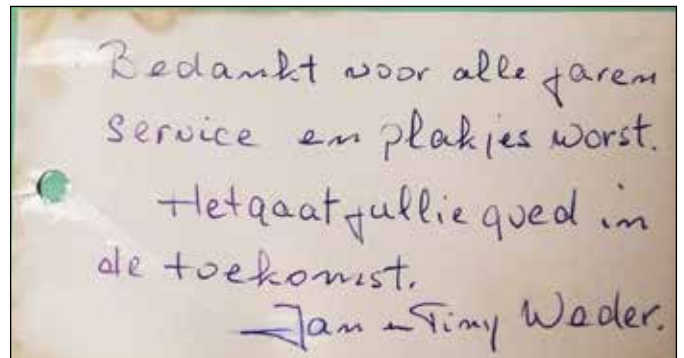 Bedankt voor alle jaren
service en plakjes worst.
Het gaat jullie goed in
de toekomst.
Jan en Tiny Weder.